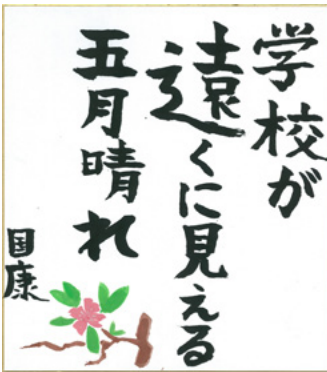 学校が
遠くに見える
五月晴れ
国康